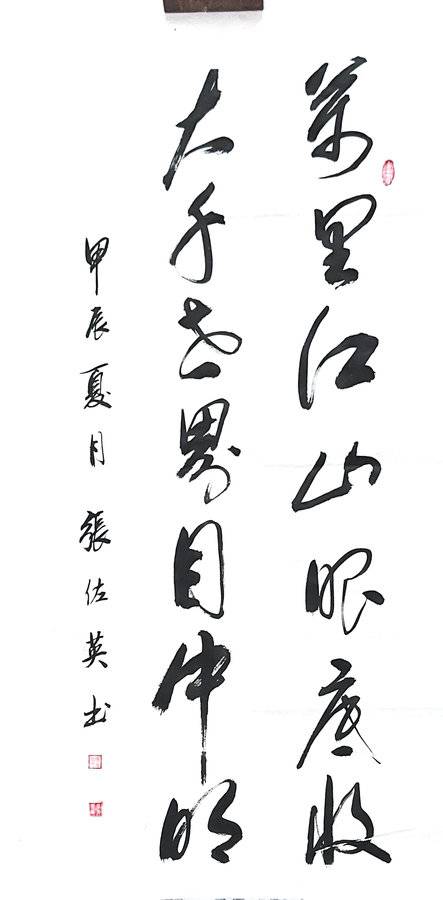 萬里江山眼底收
大千世界目中明
甲辰夏月 張佐英书